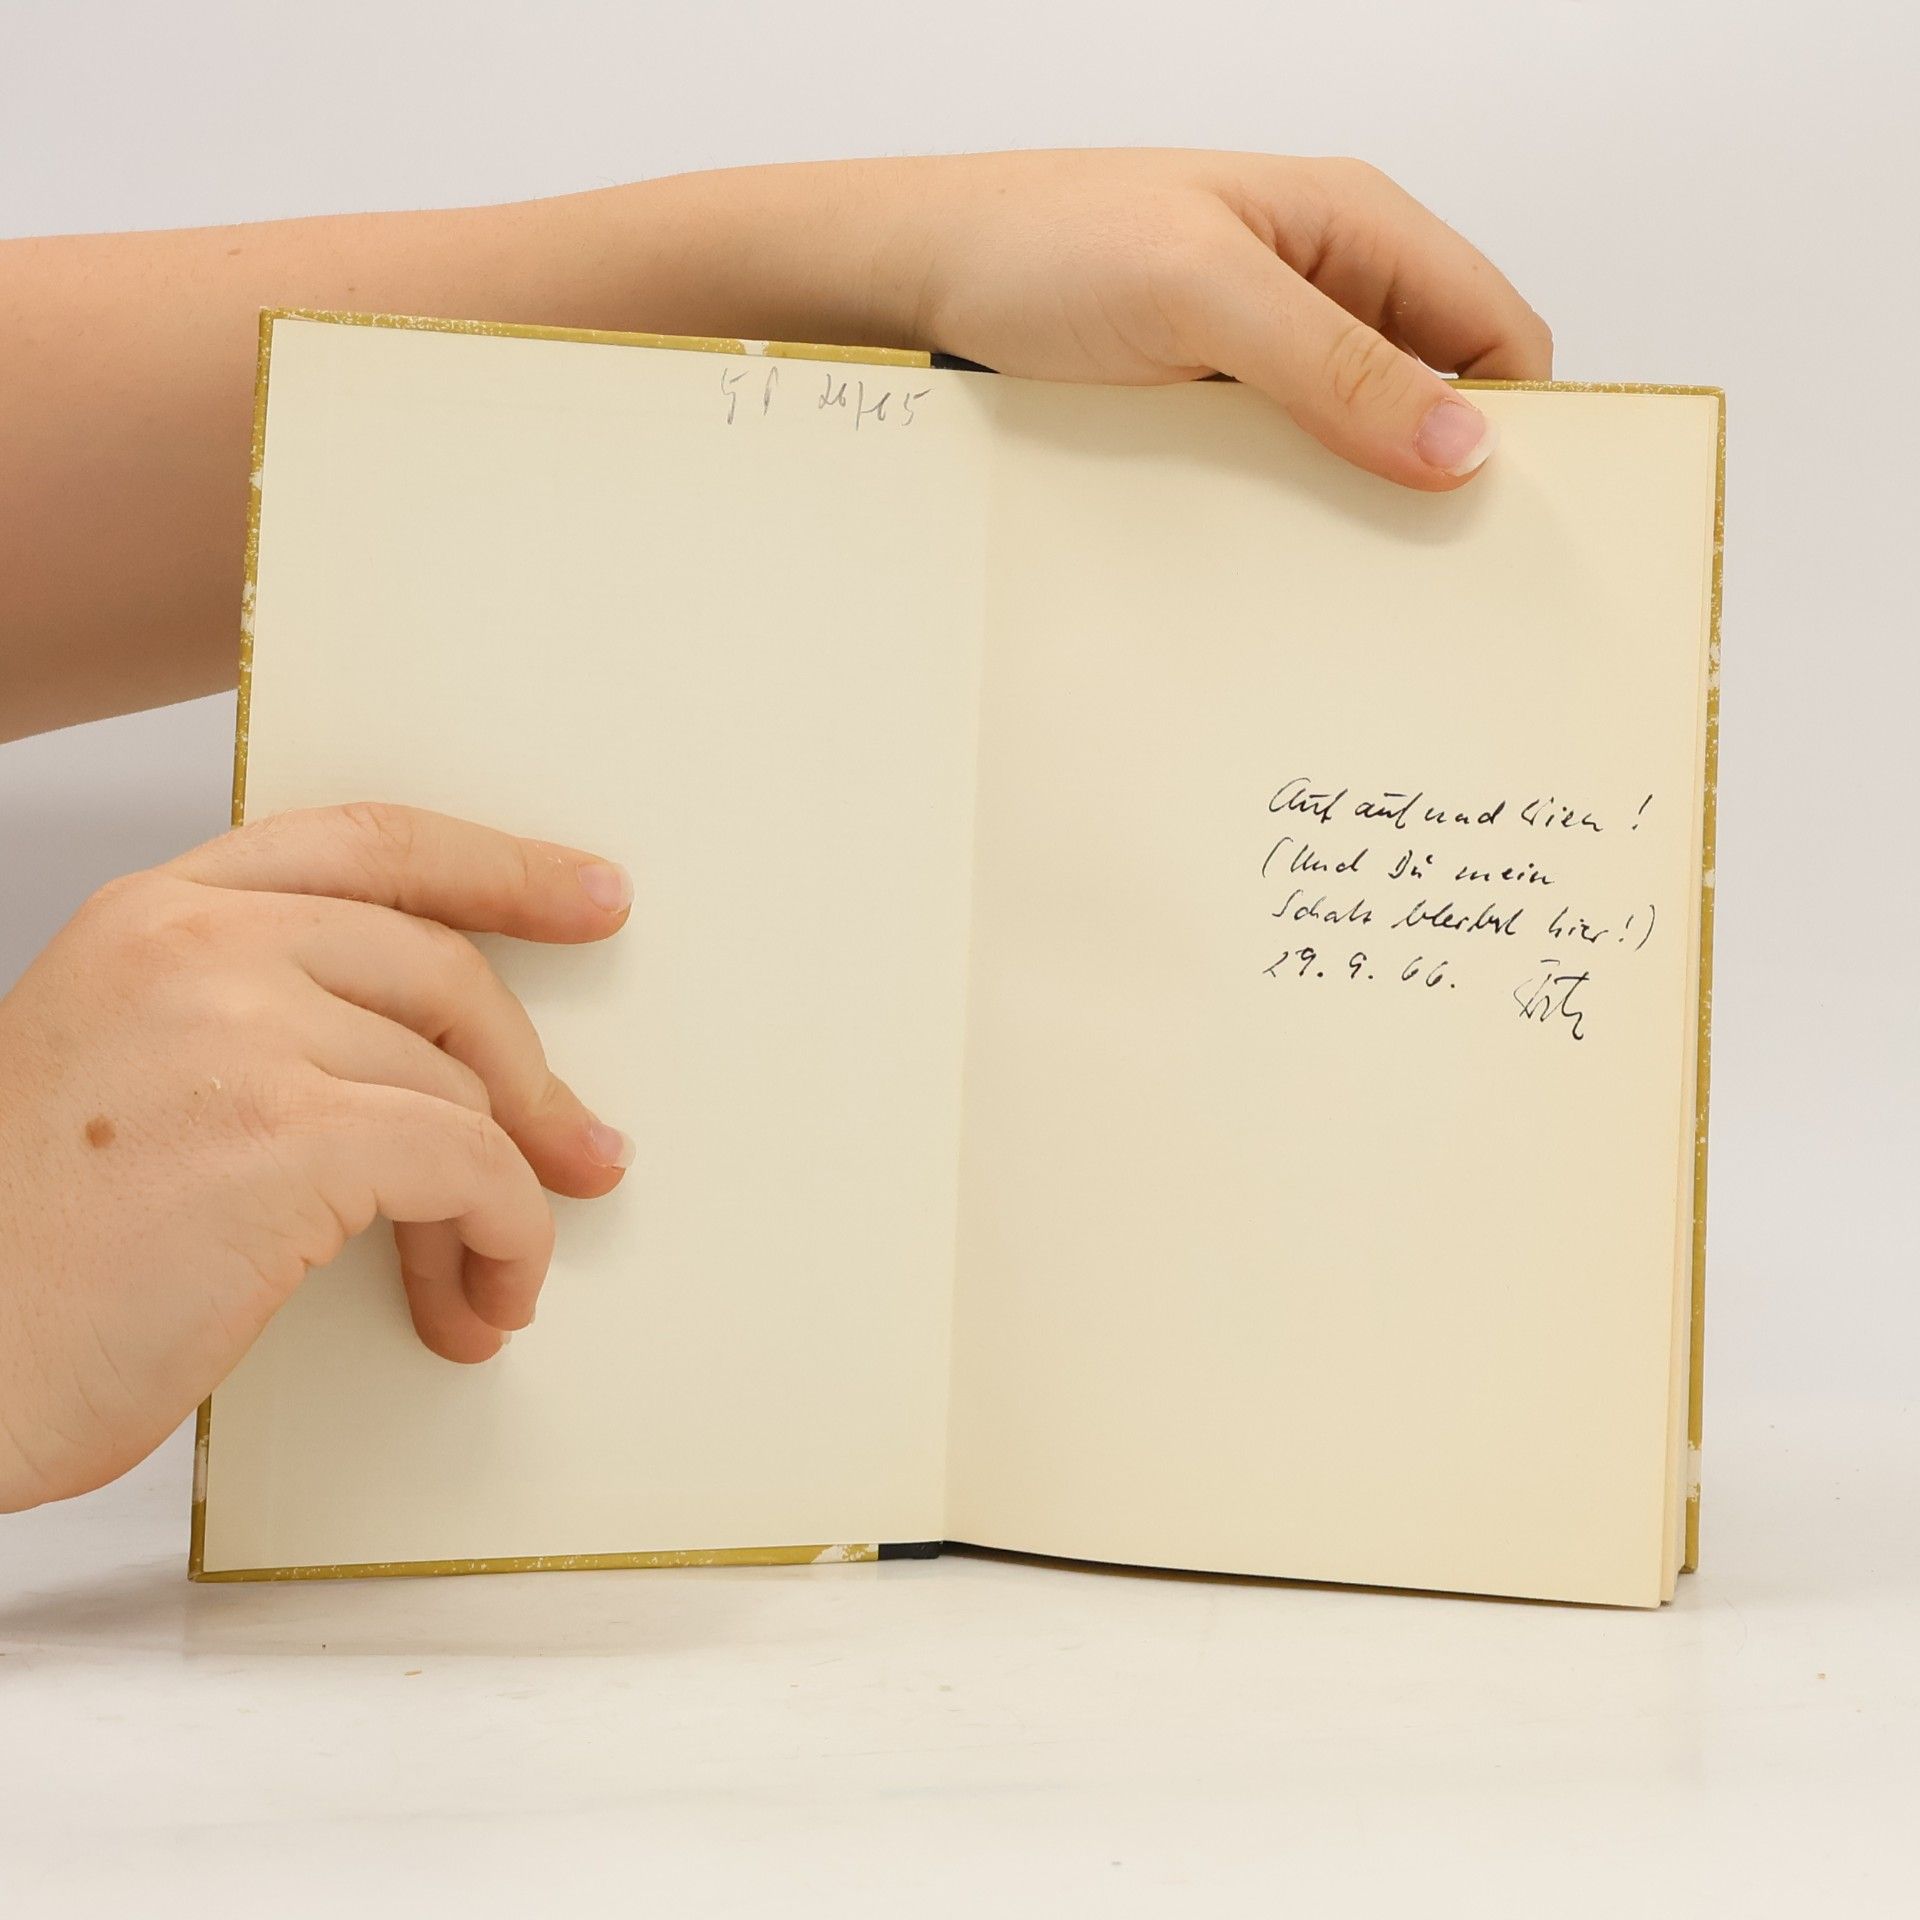 26/65
Auf auf und Wien!
(Und Du mein
Schatz bleibst hier!)
29. 9. 66.